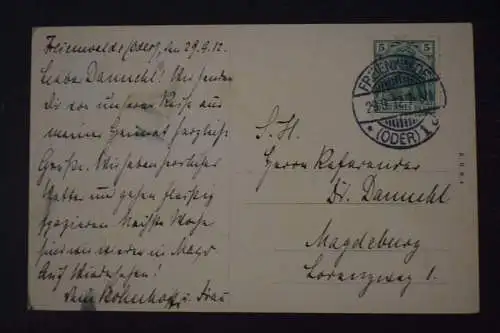 Freienwalde/Oder, den 29.9.12.
Lieber Dannehl! Wir senden
Dir von unserer Reise aus
meiner Heimat herzliche
Grüße. Wir haben herrliches
Wetter und gehen fleißig
spazieren. Nächste Woche
sind wir wieder in Magd
Auf Wiedersehen!
Dein u. Frau
5 5
FREIENWALDE
29.9.12
* (ODER) 1
S. H.
Herrn Referendar
Dr. Dannehl
Magdeburg
Lorenzweg 1.